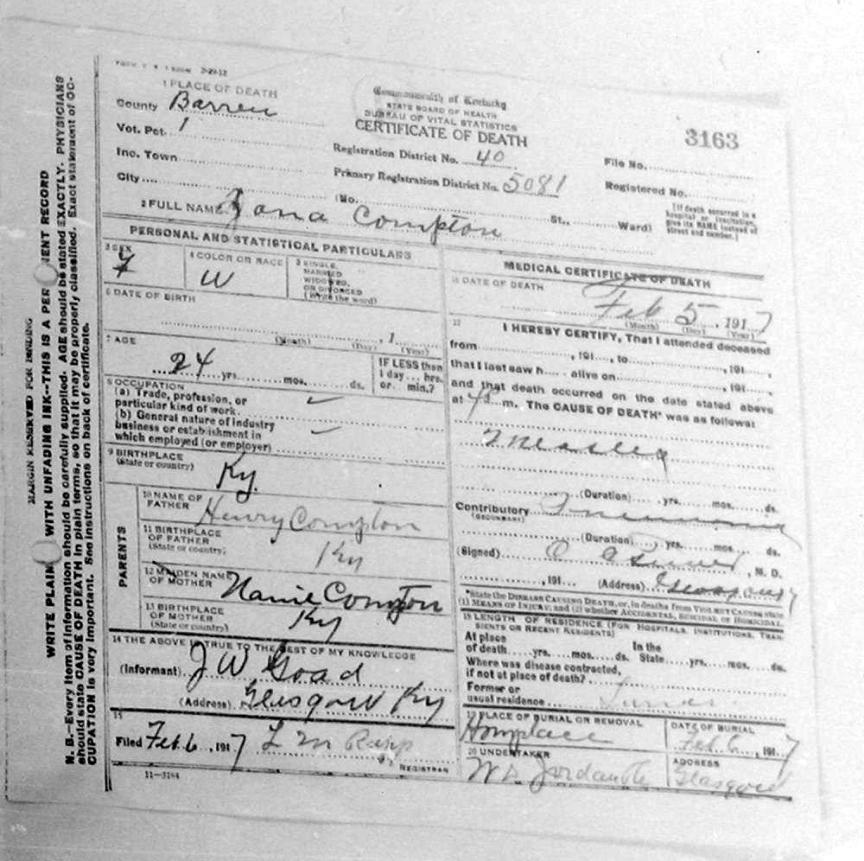 2-29-12
1 PLACE OF DEATH
County Barren
Vot. Pct. 1
Inc. Town
City
Commonwealth of Kentucky
STATE BOARD OF HEALTH
BUREAU OF VITAL STATISTICS
CERTIFICATE OF DEATH
Registration District No. 40
Primary Registration District No. 5081
(No. St., Ward)
3163
File No.
Registered No.
[If death occurred in a
hospital or institution,
give its NAME instead of
street and number.]
2 FULL NAME Compton
PERSONAL AND STATISTICAL PARTICULARS
3 SEX
F
4 COLOR OR RACE
W
5 SINGLE,
MARRIED
WIDOWED,
OR DIVORCED
(Write the word)
6 DATE OF BIRTH
(Month) (Day) , 1 (Year)
7 AGE
24 yrs. mos. ds.
IF LESS than
1 day... hrs.
or... min.?
8 OCCUPATION
(a) Trade, profession, or
particular kind of work
(b) General nature of industry
business or establishment in
which employed (or employer)
9 BIRTHPLACE
(State or country)
Ky.
PARENTS
10 NAME OF
FATHER
Henry Compton
11 BIRTHPLACE
OF FATHER
(State or country)
Ky
12 MAIDEN NAME
OF MOTHER
Nanie Compton
13 BIRTHPLACE
OF MOTHER
(State or country)
Ky
14 THE ABOVE IS TRUE TO THE BEST OF MY KNOWLEDGE
(Informant) J W Goad
(Address) Glasgow Ky
15
Filed Feb. 6, 1917 L M
REGISTRAR
11-3184
MEDICAL CERTIFICATE OF DEATH
16 DATE OF DEATH
Feb 5, 1917
(Month) (Day) (Year)
17
I HEREBY CERTIFY, That I attended deceased
from , 191 , to , 191 ,
that I last saw h alive on , 191 ,
and that death occurred on the date stated above
at m. The CAUSE OF DEATH* was as follows:
Measles
(Duration) yrs. mos. ds.
Contributory Pneumonia
(SECONDARY)
(Duration) yrs. mos. ds.
(Signed) , M. D.
, 191 (Address) Glasgow Ky
*State the DISEASE CAUSING DEATH, or, in deaths from VIOLENT CAUSES, state
(1) MEANS OF INJURY; and (2) whether ACCIDENTAL, SUICIDAL or HOMICIDAL.
18 LENGTH OF RESIDENCE (FOR HOSPITALS, INSTITUTIONS, TRAN-
SIENTS OR RECENT RESIDENTS)
At place In the
of death yrs. mos. ds. State yrs. mos. ds.
Where was disease contracted,
if not at place of death?
Former or
usual residence
19 PLACE OF BURIAL OR REMOVAL
Homplace
DATE OF BURIAL
Feb. 6, 1917
20 UNDERTAKER
ADDRESS
Glasgow
MARGIN RESERVED FOR BINDING
WRITE PLAIN WITH UNFADING INK—THIS IS A PER ENT RECORD
N. B.—Every item of information should be carefully supplied. AGE should be stated EXACTLY. PHYSICIANS
should state CAUSE OF DEATH in plain terms, so that it may be properly classified. Exact statement of OC-
CUPATION is very important. See instructions on back of certificate.